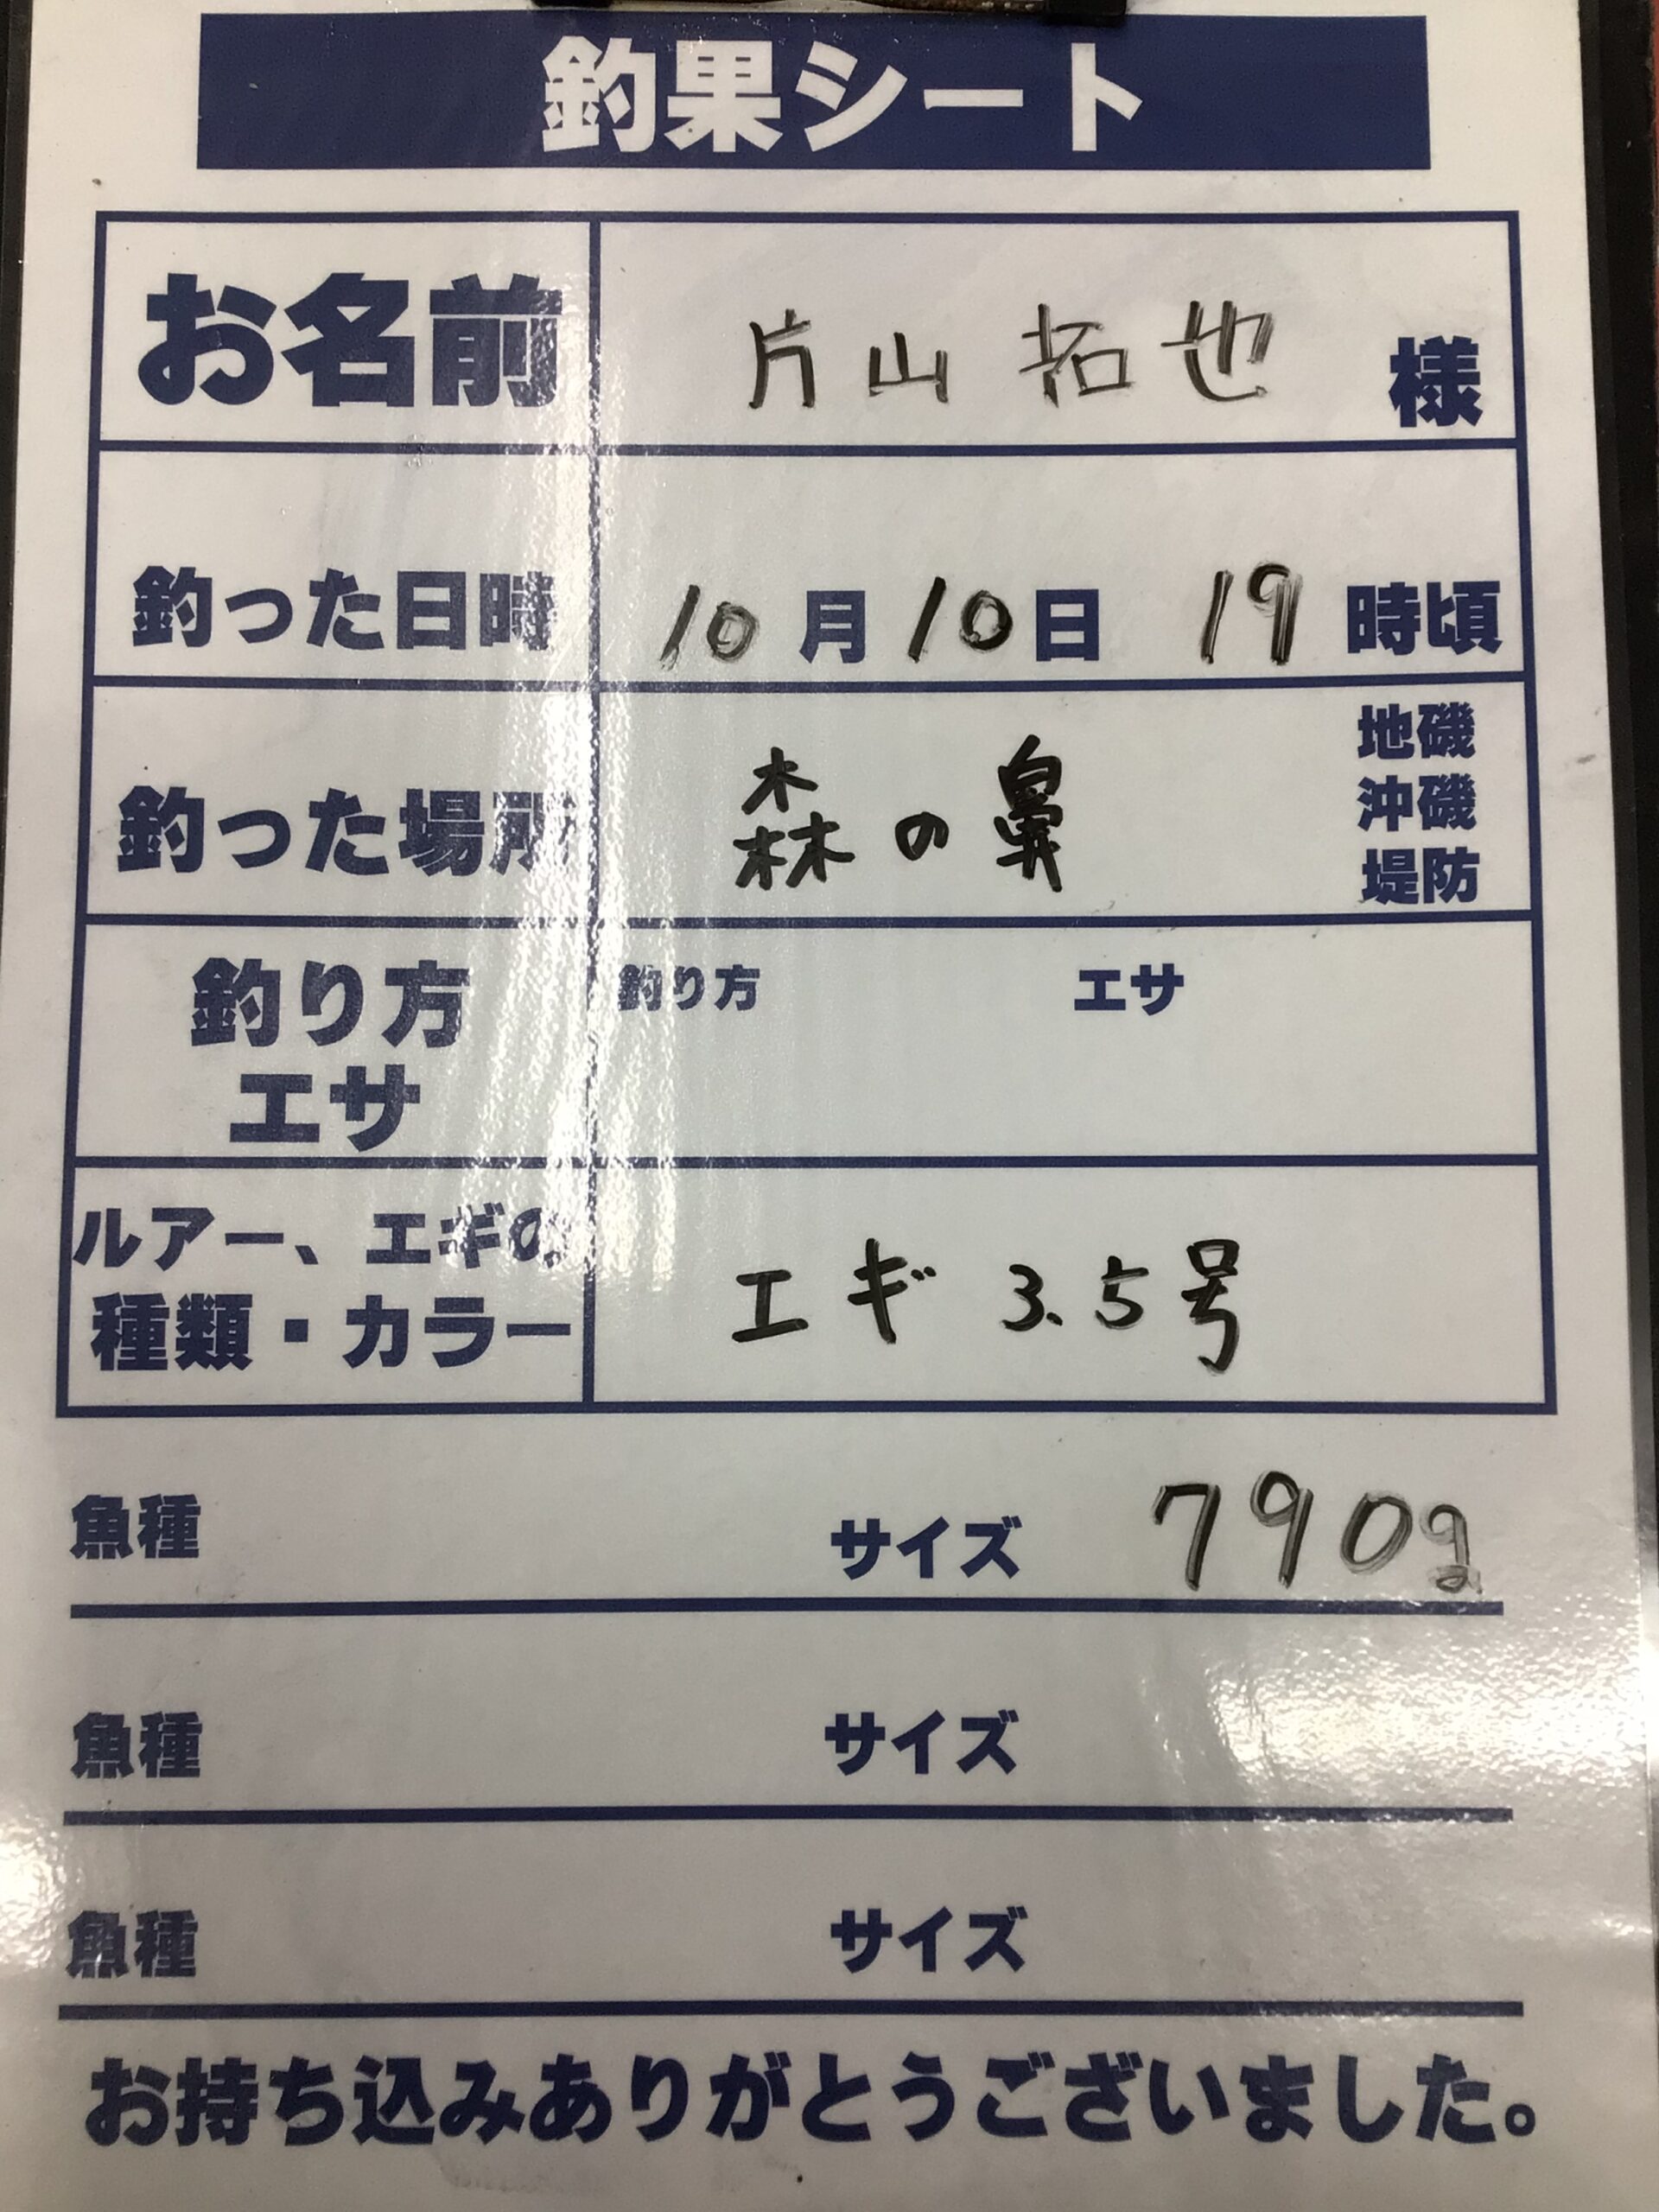 釣果シート
お名前 片山 拓也 様
釣った日時 10月10日 19時頃
釣った場所 森の鼻 地磯
沖磯
堤防
釣り方 釣り方 エサ
エサ
ルアー、エギの
種類・カラー エギ 3.5号
魚種 サイズ 790g
魚種 サイズ
魚種 サイズ
お持ち込みありがとうございました。